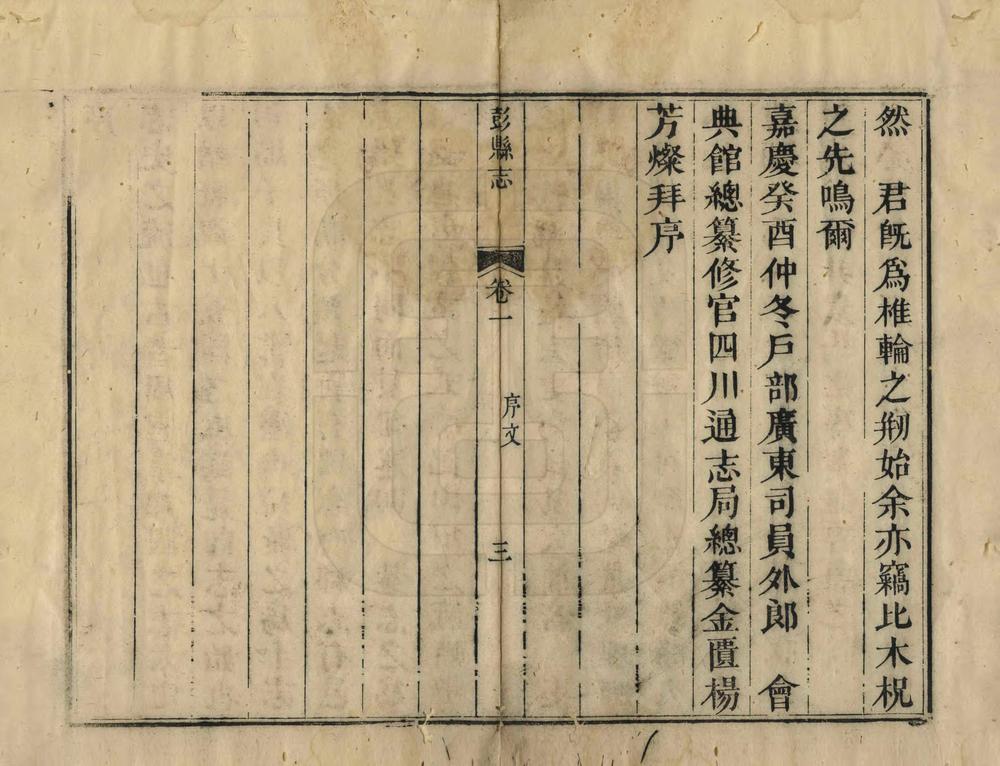 然　君旣爲椎輪之剙始余亦竊比木柷
之先鳴爾
嘉慶癸酉仲冬戶部廣東司員外郎　會
典館總纂修官四川通志局總纂金匱楊
芳燦拜序
彭縣志　卷一　序文　三